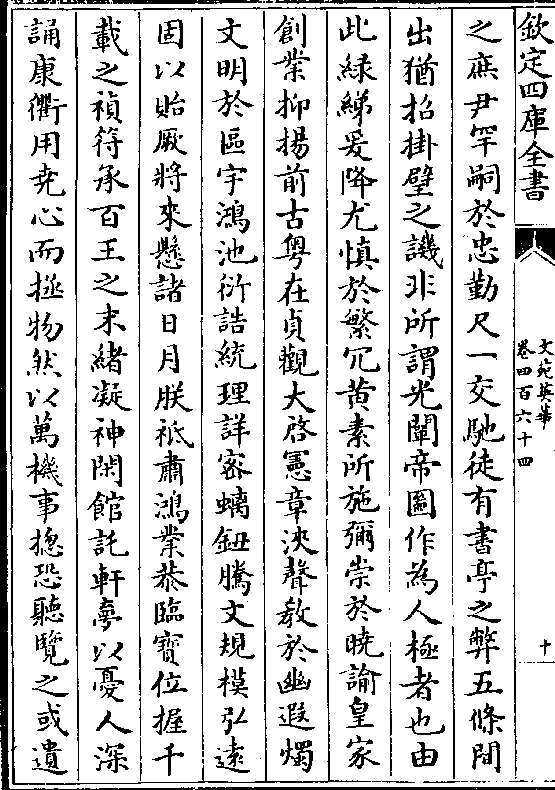 欽定四庫全書
文苑英華
卷四百六十四
十
之庶尹罕嗣於忠勤尺一交馳徒有書亭之弊五條間
出猶招掛壁之譏非所謂光闡帝圖作為人極者也由
此緑綈爰降尤慎於繁冗黄素所施彌崇於曉諭皇家
創業抑揚前古粤在貞觀大啓憲章浹聲教於幽遐燭
文明於區宇鴻池衍誥統理詳審螭鈕騰文規模弘逺
固以貽厥將來懸諸日月朕祗肅鴻業恭臨寳位握千
載之禎符承百王之末緒凝神閑館託軒夢以憂人深
誦康衢用堯心而拯物然以萬機事揔恐聽覽之或遺